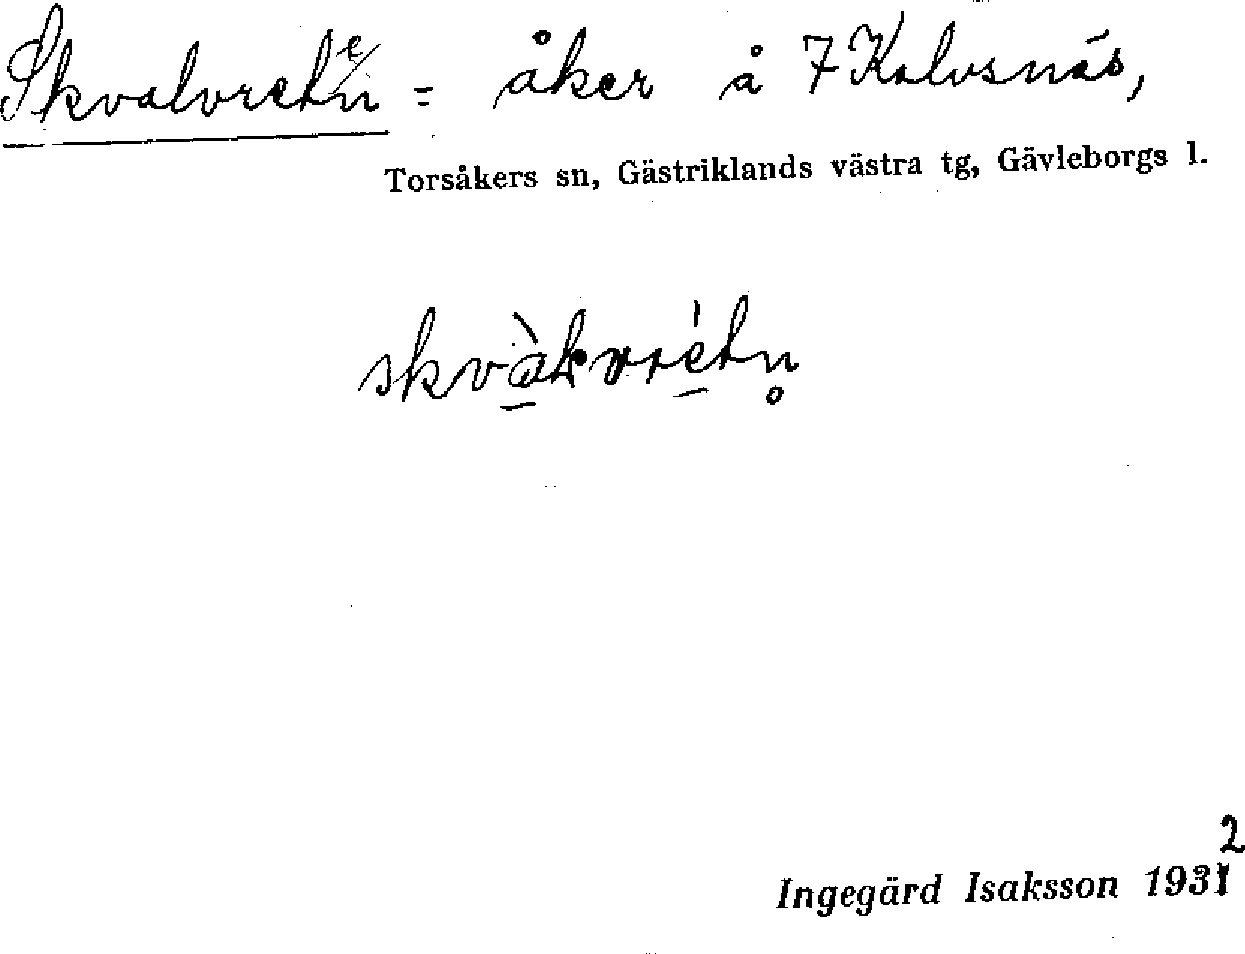 Skvalvreten = åker å 7 Kalvsnäs,
Torsåkers sn, Gästriklands västra tg, Gävleborgs l.
Ingegärd Isaksson 1932